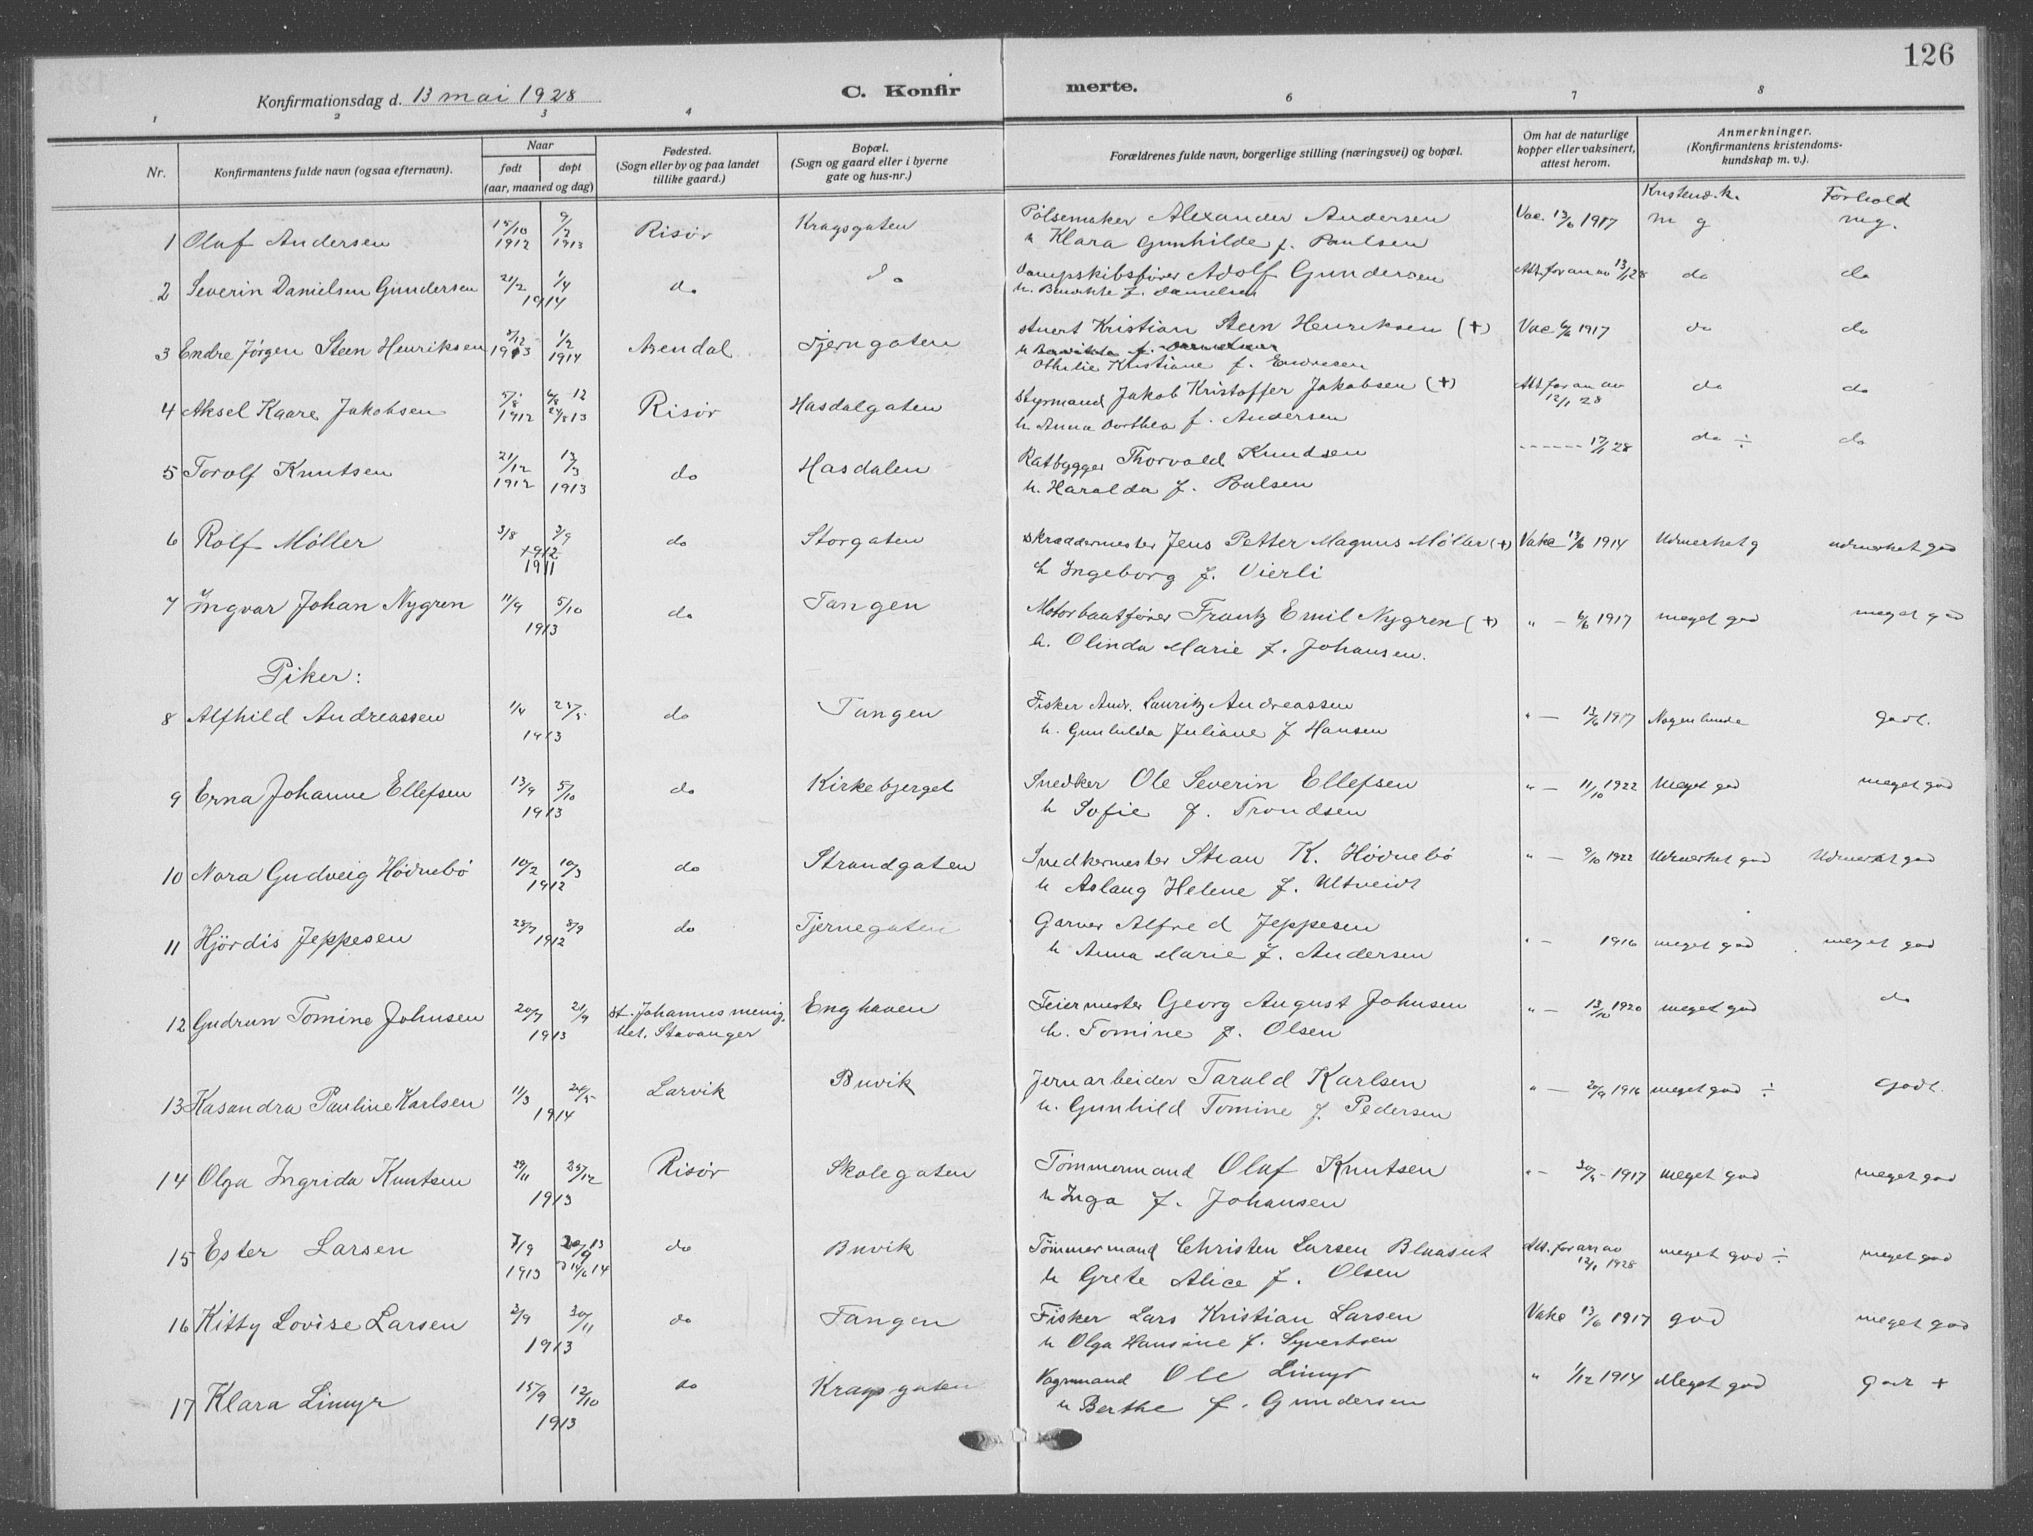 126
Konfirmationsdag d. 13 mai 1928 C. Konfirmerte.
1 2 3 4 6 7 8
Nr. Konfirmantens fulde navn (ogsaa efternavn). Naar født døpt (aar, maaned og dag) Fødested. (Sogn eller by og paa landet tillike gaard.) Bopæl. (Sogn og gaard eller i byerne gate og hus-nr.) Forældrenes fulde navn, borgerlige stilling (næringsvei) og bopæl. Om hat de naturlige kopper eller vaksinert, attest herom. Anmerkninger. (Konfirmantens kristendoms-kundskap m. v.)
Kristend.k. Forhold
1 Olaf Andersen 15/10 1912 9/2 1913 Risør Kragsgaten Pølsemaker Alexander Andersen Vac. 13/6 1917 m g mg.
h Klara Gunhilde f. Paulsen
2 Severin Danielsen Gundersen 21/2 1/4 1914 do do Dampskibsfører Adolf Gundersen Att. for an av 13/1 28 do do
h. Benedikte f. Danielsen
3 Endre Jørgen Steen Henriksen 1913 1/2 1914 Arendal Tjerngaten Stuert Kristian Steen Henriksen (+) Vac 6/6 1917 do do
Othilie Kristiane f. Endresen
4 Aksel Kaare Jakobsen 5/8 1912 6/8 12 24/8 13 Risør Hasdalgaten Styrmand Jakob Kristoffer Jakobsen (+) Att. for an av 12/1 28 do do
h Anna Dorthea f. Andersen
5 Torolf Knutsen 21/12 1912 13/3 1913 do Hasdalen Ratbygger Thorvald Knudsen ------ 17/1 28 do ÷ do
h. Haralda f. Poulsen
6 Rolf Møller 3/8 3/9 1912 1911 do Storgaten Skræddermester Jens Petter Magnus Møller (+) Vake 13/6 1914 Udmerket g udmerket god
h Ingeborg f. Vierli
7 Ingvar Johan Nygren 11/9 5/10 1913 do Tangen Motorbaatfører Frantz Emil Nygren (+) " — 6/6 1917 meget god meget god
h. Olinda Marie f. Johansen.
Piker:
8 Alfhild Andreassen 1/4 25/5 1913 do Tangen Fisker Andr. Lauritz Andreassen " — 13/6 1917 Nogenlunde Godt.
h. Gunhilda Juliane f Hansen
9 Erna Johanne Ellefsen 13/9 5/10 1913 do Kirkebjerget Snedker Ole Severin Ellefsen " — 11/10 1922 Meget god meget god
h Sofie f. Trondsen
10 Nora Gudveig Hødnebø 10/2 10/3 1912 do Strandgaten Snedkermester Stian K. Hødnebø " — 9/10 1922 Udmerket god Udmerket god
h Aslaug Helene f. Ultveidt
11 Hjördis Jeppesen 28/7 8/9 1912 do Tjernegaten Garver Alfred Jeppesen " — 1916 meget god meget god
h Anna Marie f. Andersen
12 Gudrun Tomine Johnsen 20/7 21/9 1913 St. Johannes menig. het, Stavanger Enghaven Feiermester Georg August Johnsen " — 13/10 1920 meget god do
h. Tomine f. Olsen
13 Kasandra Pauline Karlsen 11/3 24/5 1914 Larvik Buvik Jernarbeider Tarald Karlsen " — 20/9 1916 meget god ÷ Godt.
h. Gunhild Tomine f Pedersen
14 Olga Ingrida Knutsen 29/11 25/12 1913 Risør Skolegaten Tømmermand Olaf Knutsen " — 30/5 1917 meget god meget god
h Inga f. Johansen
15 Ester Larsen 7/9 1913 20/9 13 14/6 14 do Buvik Tømmermand Christen Larsen Blaasut Att. for an av 12/1 1928 meget god ÷ meget god
h Grete Alice f. Olsen
16 Kitty Lovise Larsen 2/9 30/11 1913 do Tangen Fisker Lars Kristian Larsen Vake 13/6 1917 god meget god
h Olga Hansine f. Syvertsen
17 Klara Limyr 15/9 12/10 1913 do Kragsgaten Vognmand Ole Limyr " 1/12 1914 Meget god God +
h Berthe f. Gundersen